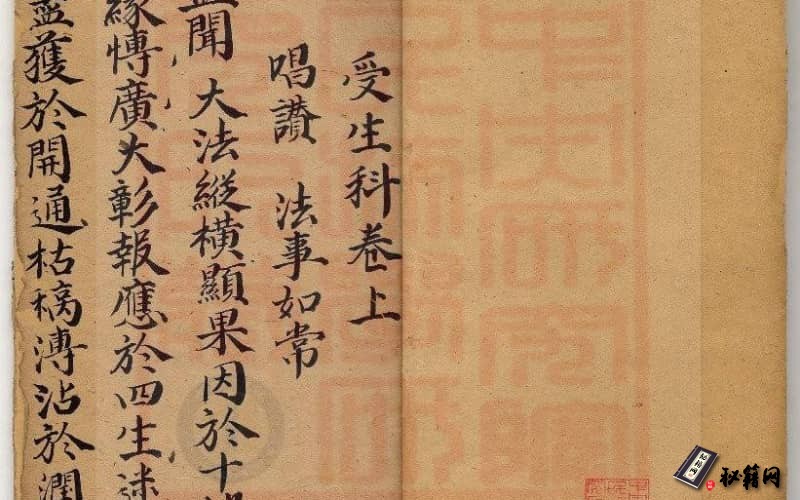 受生科卷上
唱讚 法事如常
聞 大法縱橫顯果因於十
緣慱廣大彰報應於四生迷
盡獲於開通枯槁溥沾於潤
秘籍网